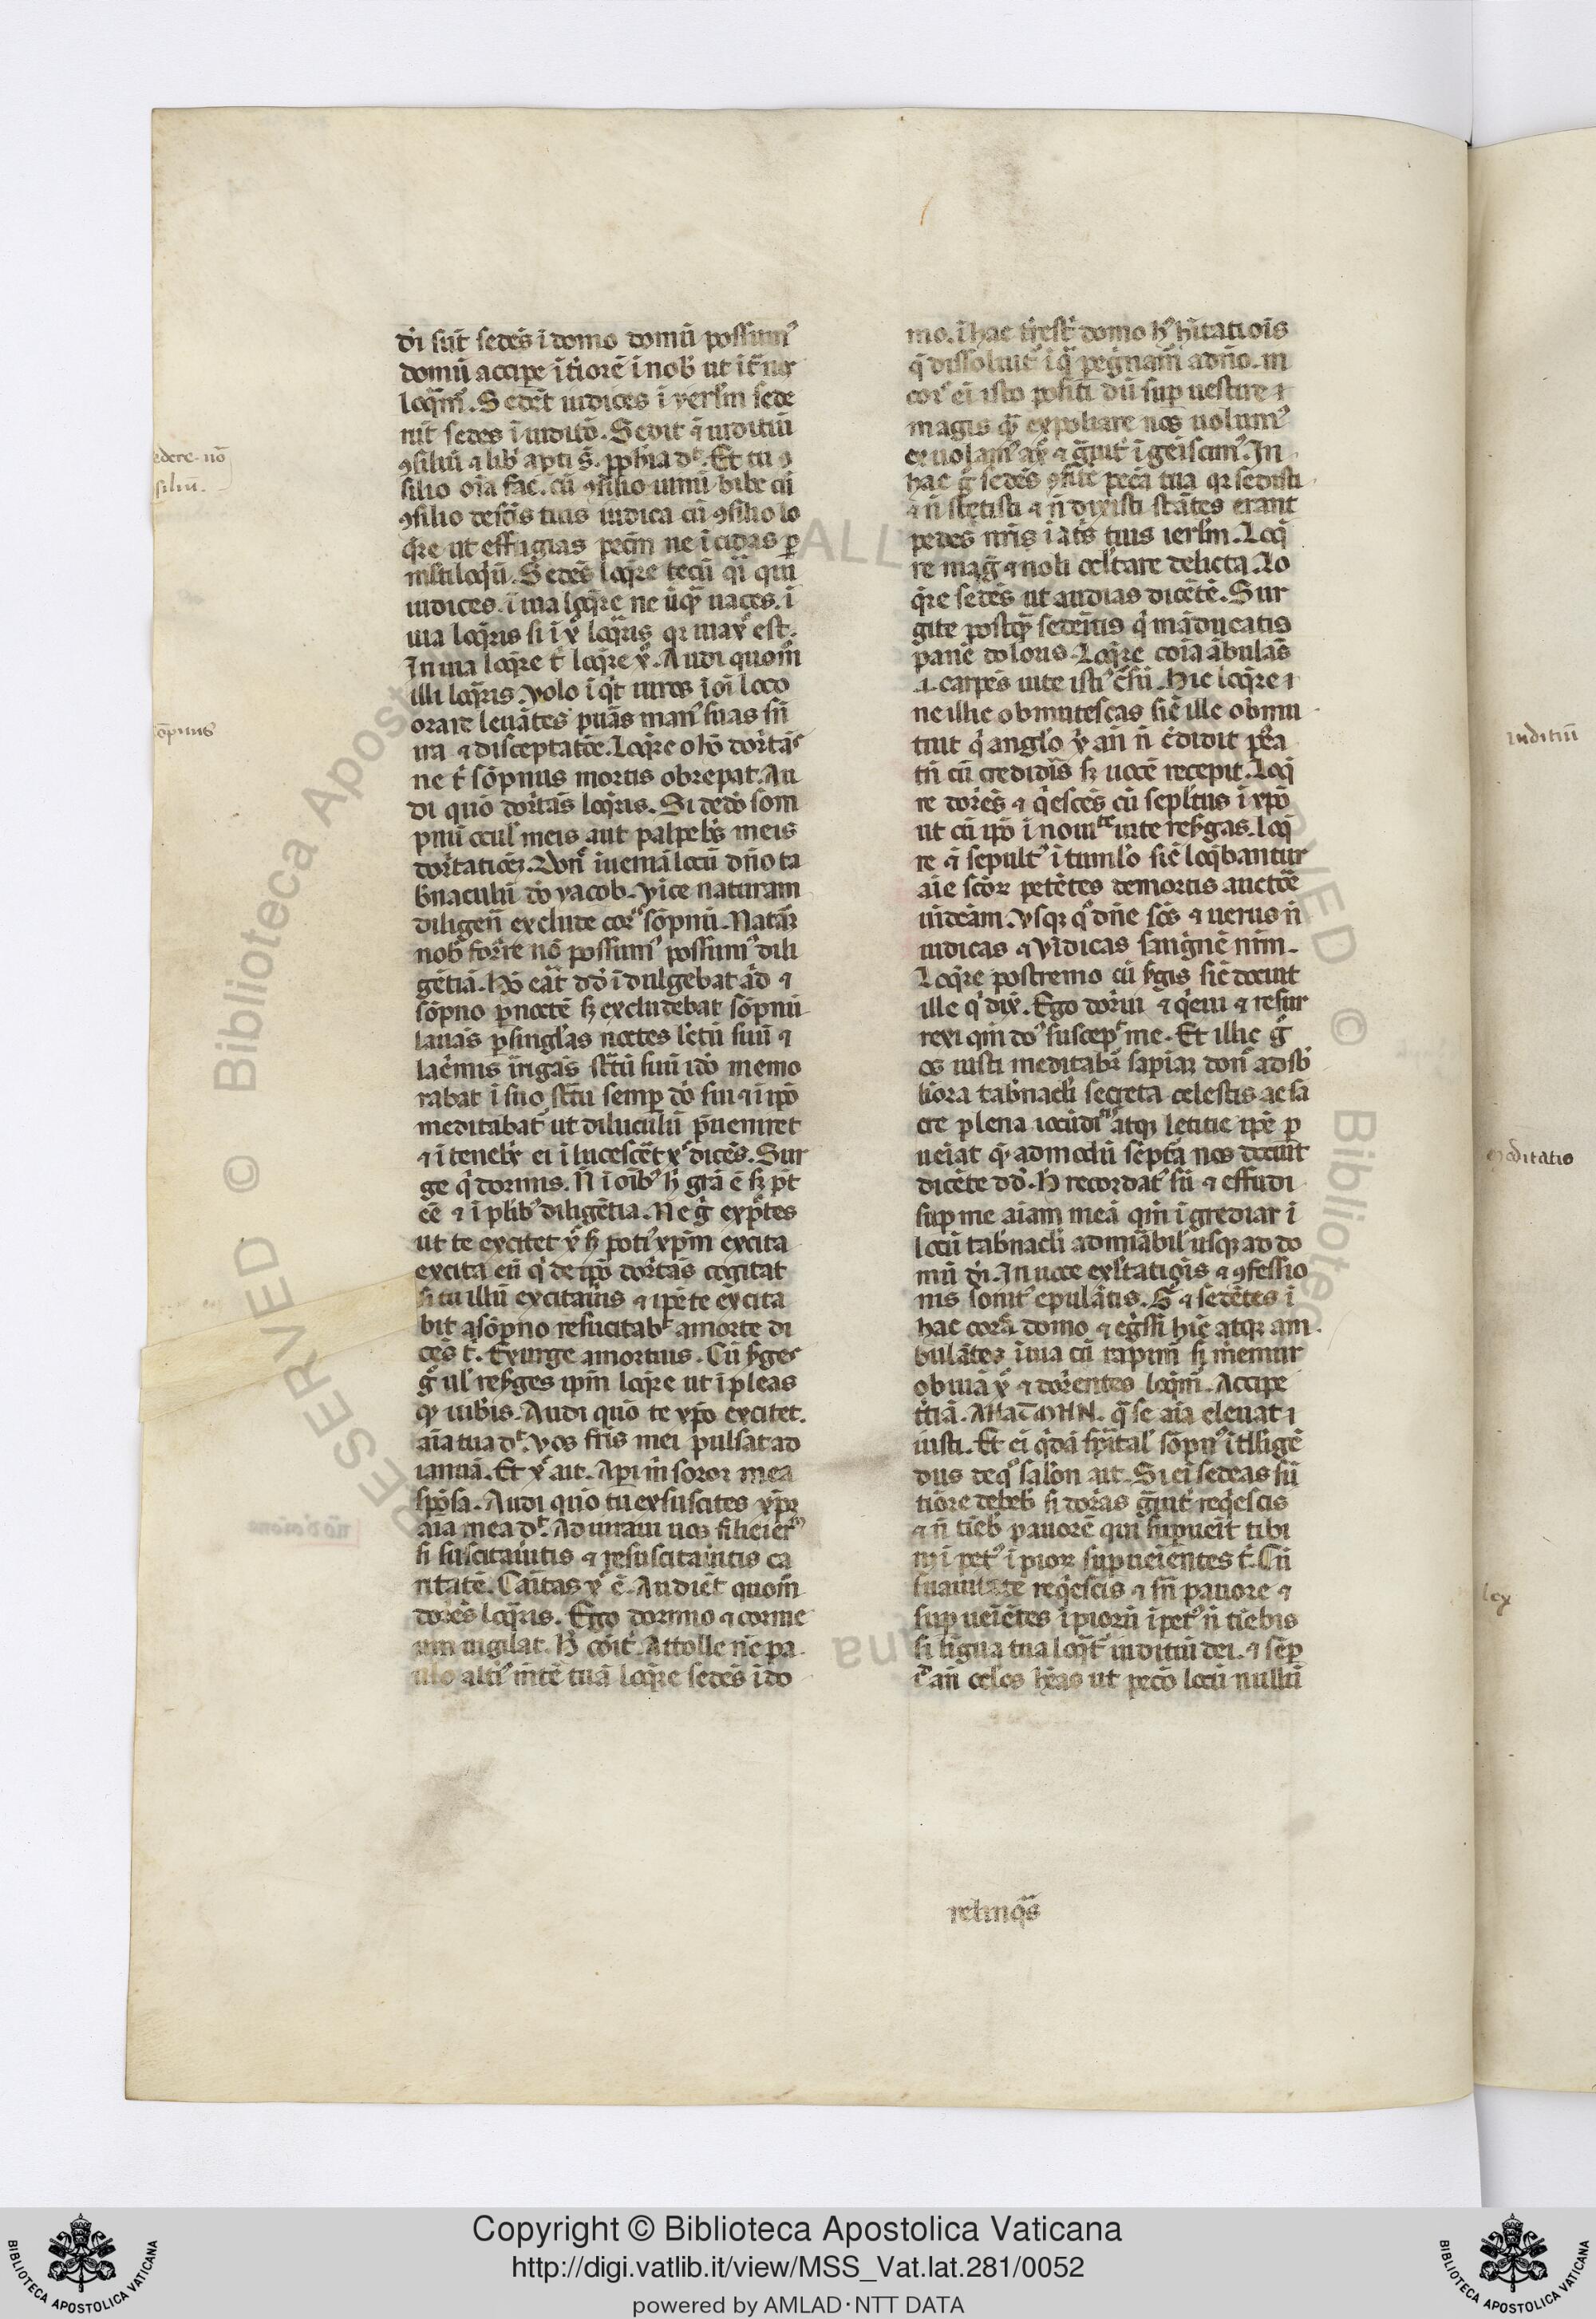 di sūt sedēs ī domo domū possum᾽
domū accipe ītiorē ī nob̄ ut
loq̄m᾽. Sedēt iudices ī yerlm̄ sede
rūt sedes ī iuditō. Sedit iuditiū
ꝯsiliū ⁊ lib̄ apti s̄. pph̄ia dt̄. Et cū ꝯ
silio oīa fac. cū ꝯsilio uinū bibe cū
ꝯsilio tuis iudica cū ꝯsilio lo
q̄re ut effugias pecm̄ ne īcidas p̄
multiloq̄ū. Sedēs loq̄re tecū qī qui
iudices. ī uia loq̄re ne ūq̄ uaces. ī
uia loq̄ris si ī x̄ loq̄ris qꝛ uia x̄ est.
In uia loq̄re t̄ loq̄re x̄. Audi quom̄
illi loq̄ris. Volo ī q̄t uiros ī oī loco
orare leuātes puās man᾽ suas sn̄
ira ⁊ disceptatōe. Loq̄re
ne t̄ sōpnus mortis obrepat. Au
di quō loq̄ris. Si dedo som
pnū ocul᾽ meis aut palpeb̄s meis
dortatiōeꝫ. Don᾽ inueniā locū dn̄o ta
b̄naculū dō yacob. Vice naturam
diligen̄ exclude cor᾽ sōpnū. Natāꝫ
nob̄ nō possum᾽ possum᾽ dili
gētiā. Dd ī dulgebat ⁊
sōpno p noctē sꝫ excludebat sōpnū
lauās p singlas noctes lectū suū ⁊
lac̄mis irigās st̄tū suū idō memo
rabat ī suo st̄tu semp dō sui ⁊ ī ipō
meditabat᾽ ut diluculū p̄ueniret
⁊ ī tenebr̄ ei īlucescēt x̄ dicēs. Sur
ge q̄ dormis. N̄ ī oīb᾽ gr̄a ē sꝫ pt̄
eē ⁊ ī plib᾽ diligētia. Ne ḡ
ut te excitet x̄ sꝫ poti᾽ xpm̄ excita
excita eū q̄ de ipō dortās cogitat
si tu illū excitaūis ⁊ ipē te excita
bit a sōpno resucitab᾽ a morte di
cēs t̄. Exurge a mortuis. Cū s̄ges
ḡ ul᾽ res̄ges ipm̄ loq̄re ut īpleas
qꝫ iub̄is. Audi quō te xpō excitet.
aīa tua dt̄. vos fr̄is mei pulsat ad
ianuā. Et x̄ ait. Api m̄ soror mea
spōsa. Audi quō tu exsuscites xpꝫ
aīa mea dt̄. Adiuraui uos filie ier᾽
si suscitauitis ⁊ resuscitauitis ca
ritatē. Caritas x̄ ē. Audiēt quom̄
dorēs loq̄ris. Ego dormio ⁊ corme
um uigilat. H̄ cōit᾽. Attolle nc̄ pa
ulo alti᾽ mētē tuā loq̄re sedēs ī do
mo. ī hac trēst᾽ domo h᾽ hītatiōis
q̄ dissoluit᾽ ī q̄ peḡnam̄ a dn̄o. in
cor᾽ ei isto positi dū sup uestire ⁊
magis q̄ expoliare nos uolum᾽
euolam᾽ ad x̄ ⁊ ḡuit᾽ īgeiscim᾽. In
hac ḡ sedēs ꝯfitē pecā tua qꝛ sedisti
⁊ n̄ stetisti ⁊ n̄ dixisti stātes erant
pedes nr̄is ī at̄s tuis ierlm̄. Loq̄
re mag᾽ ⁊ noli celtare delicta. Lo
q̄re sedēs ut audias dicētē. Sur
gite postq̄ sederitis q̄ māducatis
panē doloris. Loq̄re cōia ābulās
.i. carpēs uite isti᾽ cursū. Hic loq̄re ⁊
ne illic obmutescas sic̄ ille obmu
tuit q̄ anglo x̄ an̄ n̄ c̄didit pea
tn̄ cū credidis̄ sꝫ uocē recepit. Loq̄
re dorēs ⁊ q̄escēs cū sepltus ī xpō
ut cū ipō ī nouitate uite res̄gas. loq̄
re ⁊ sepult᾽ ī tumlo sic̄ loq̄bantur
aīe scōꝝ petētes de mortis auctōe
uīdcam. Vsqꝫ q᾽ dn̄e scs̄ ⁊ uerus n̄
iudicas ⁊ vidicas sanguinē nrm̄.
Loq̄re postremo cū s̄gis sic̄ docuit
ille q̄ dix̄. Ego dorm̄ui ⁊ q̄eui ⁊ resur
rexi qm̄ do᾽ suscep᾽ me. Et illic ḡ
os iusti meditab̄r sapiaꝫ don᾽ ad sb̄
liora tab̄nacli secreta celestis ac sa
cre plena atqꝫ letitie ipē p̄
ueiat qꝫ ad modū sc̄pta nos docuit
dicēte dd̄. H̄ recordat᾽ sū ⁊ effudi
sup me aīam meā qm̄ īgrediar ī
locū tab̄nacli admiābil᾽ usqꝫ ad do
mū dī. In uoce exltatiōis ⁊ ꝯfessio
nis sonit᾽ epulātis. S᾽ ⁊ sedētes ī
hac corā domo ⁊ eḡssi hic̄ atqꝫ am
bulātes ī uia cū rapim̄ sꝫ m̄emur
obuiā x̄ ⁊ dorēntes loq̄m̄. Accipe
t̄tiā. q̄ se aīa eleuat ⁊
iusti. Et ei q̄dā sp̄ital᾽ sōpn᾽ ītlligē
dus de q᾽ salōn ait. Si eī sedeas sn̄
tiōre debeb̄ si dorās ḡuit᾽ reqescis
⁊ n̄ tieb̄ pauorē qui supueīt tibi
nꝫ īpet᾽ īpioꝝ supueientes t̄. Cū
suauitate reqescis ⁊ sn̄ pauore ⁊
sup ueiētes īpiorū īpet᾽ n̄ tiebis
si ligua tua loq̄t᾽ iuditiū dei. ⁊ sēp
an̄ oclos h̄eas ut peco locū nullū
relinq̄s
edere nō
siliū.
sōpnus
iuditiū
meditatio
lex
Copyright © Biblioteca Apostolica Vaticana
http://digi.vatlib.it/view/MSS_Vat.lat.281/0052
powered by AMLAD·NTT DATA
BIBLIOTECA APOSTOLICA VATICANA
BIBLIOTECA APOSTOLICA VATICANA